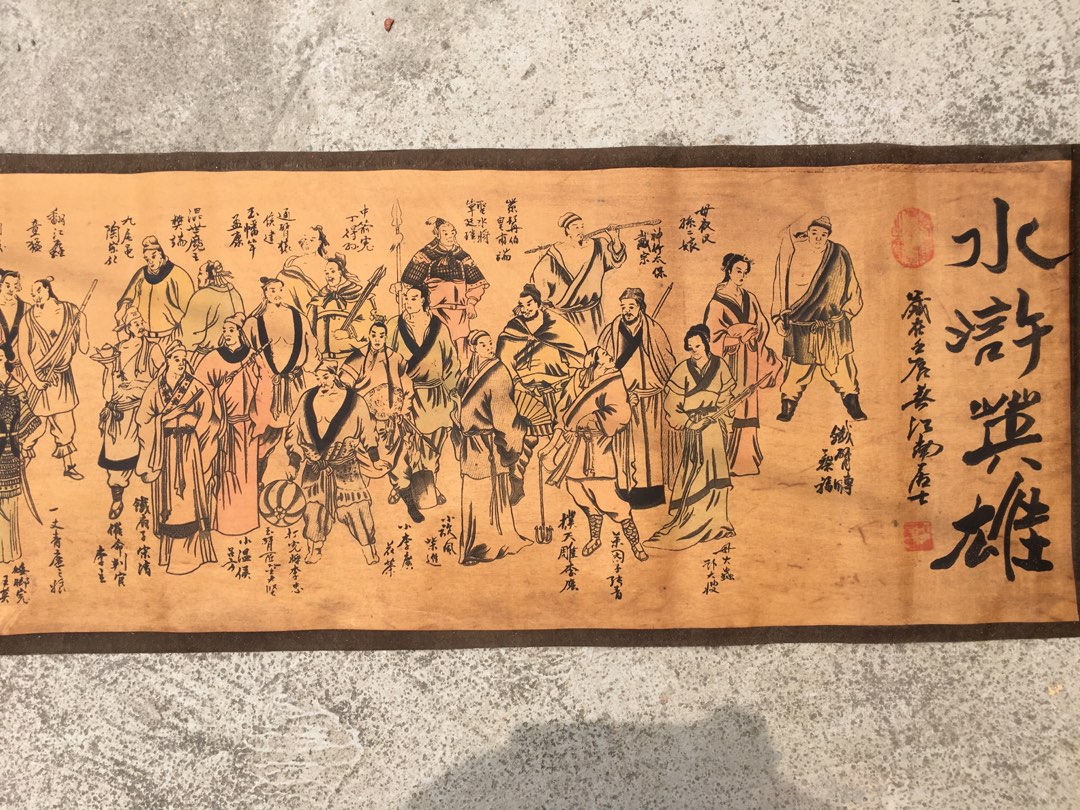 水滸英雄
歲在壬辰 吳江南居士
鐵臂膊
蔡福
母夜叉
孫二娘
母大蟲
顧大嫂
神行太保
戴宗
菜园子張青
撲天雕李應
紫髯伯
皇甫端
聖水將
單廷珪
小旋風
柴進
中箭虎
丁得孙
小李廣
花榮
打虎將李忠
通臂猿
侯健
玉幡竿
孟康
小温侯
吕方
混世魔王
樊瑞
鐵扇子宋清
九尾龟
陶宗旺
催命判官
李立
翻江蜃
童猛
一丈青扈三娘
矮脚虎
王英